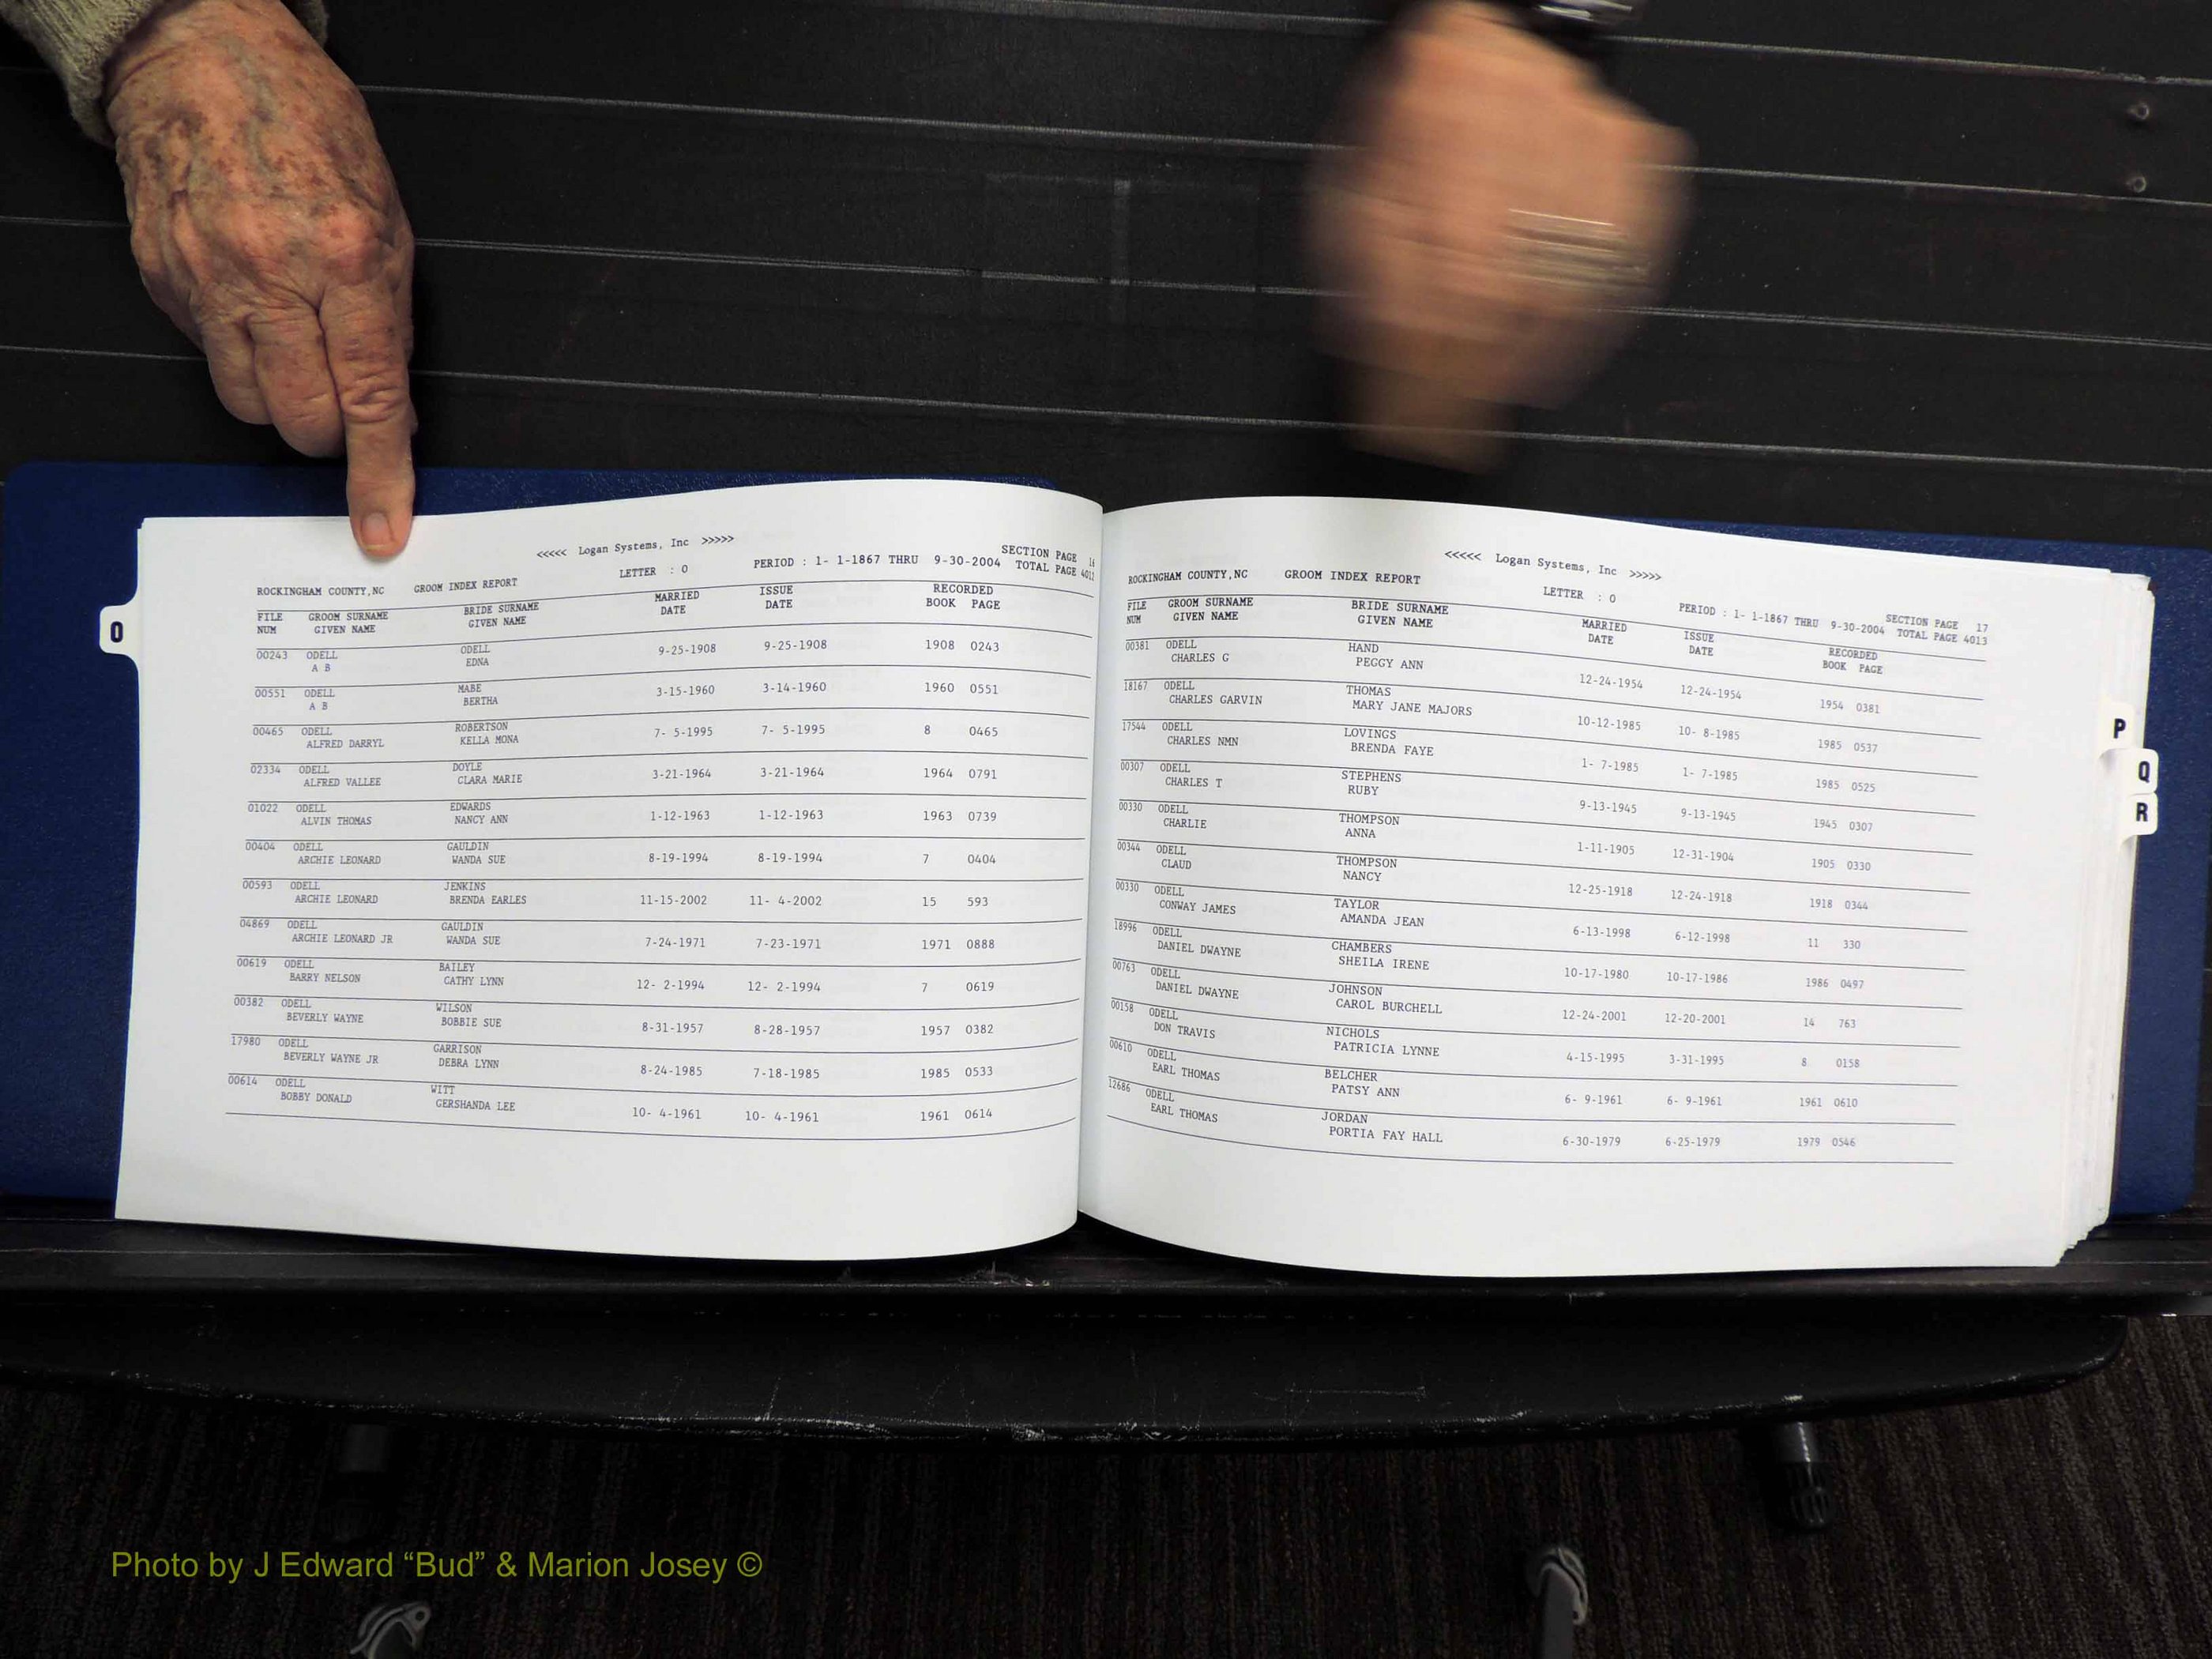 <<<<< Logan Systems, Inc >>>>>
SECTION PAGE 16
ROCKINGHAM COUNTY,NC GROOM INDEX REPORT LETTER : O PERIOD : 1- 1-1867 THRU 9-30-2004 TOTAL PAGE
FILE GROOM SURNAME BRIDE SURNAME MARRIED ISSUE RECORDED
NUM GIVEN NAME GIVEN NAME DATE DATE BOOK PAGE
00243 ODELL ODELL 9-25-1908 9-25-1908 1908 0243
A B EDNA
00551 ODELL MABE 3-15-1960 3-14-1960 1960 0551
A B BERTHA
00465 ODELL ROBERTSON 7- 5-1995 7- 5-1995 8 0465
ALFRED DARRYL KELLA MONA
02334 ODELL DOYLE 3-21-1964 3-21-1964 1964 0791
ALFRED VALLEE CLARA MARIE
01022 ODELL EDWARDS 1-12-1963 1-12-1963 1963 0739
ALVIN THOMAS NANCY ANN
00404 ODELL GAULDIN 8-19-1994 8-19-1994 7 0404
ARCHIE LEONARD WANDA SUE
00593 ODELL JENKINS 11-15-2002 11- 4-2002 15 593
ARCHIE LEONARD BRENDA EARLES
04869 ODELL GAULDIN 7-24-1971 7-23-1971 1971 0888
ARCHIE LEONARD JR WANDA SUE
00619 ODELL BAILEY 12- 2-1994 12- 2-1994 7 0619
BARRY NELSON CATHY LYNN
00382 ODELL WILSON 8-31-1957 8-28-1957 1957 0382
BEVERLY WAYNE BOBBIE SUE
17980 ODELL GARRISON 8-24-1985 7-18-1985 1985 0533
BEVERLY WAYNE JR DEBRA LYNN
00614 ODELL WITT 10- 4-1961 10- 4-1961 1961 0614
BOBBY DONALD GERSHANDA LEE
O
<<<<< Logan Systems, Inc >>>>>
SECTION PAGE 17
ROCKINGHAM COUNTY,NC GROOM INDEX REPORT LETTER : O PERIOD : 1- 1-1867 THRU 9-30-2004 TOTAL PAGE 4013
FILE GROOM SURNAME BRIDE SURNAME MARRIED ISSUE RECORDED
NUM GIVEN NAME GIVEN NAME DATE DATE BOOK PAGE
00381 ODELL HAND 12-24-1954 12-24-1954 1954 0381
CHARLES G PEGGY ANN
18167 ODELL THOMAS 10-12-1985 10- 8-1985 1985 0537
CHARLES GARVIN MARY JANE MAJORS
17544 ODELL LOVINGS 1- 7-1985 1- 7-1985 1985 0525
CHARLES NMN BRENDA FAYE
00307 ODELL STEPHENS 9-13-1945 9-13-1945 1945 0307
CHARLES T RUBY
00330 ODELL THOMPSON 1-11-1905 12-31-1904 1905 0330
CHARLIE ANNA
00344 ODELL THOMPSON 12-25-1918 12-24-1918 1918 0344
CLAUD NANCY
00330 ODELL TAYLOR 6-13-1998 6-12-1998 11 330
CONWAY JAMES AMANDA JEAN
18996 ODELL CHAMBERS 10-17-1980 10-17-1986 1986 0497
DANIEL DWAYNE SHEILA IRENE
00763 ODELL JOHNSON 12-24-2001 12-20-2001 14 763
DANIEL DWAYNE CAROL BURCHELL
00158 ODELL NICHOLS 4-15-1995 3-31-1995 8 0158
DON TRAVIS PATRICIA LYNNE
00610 ODELL BELCHER 6- 9-1961 6- 9-1961 1961 0610
EARL THOMAS PATSY ANN
12686 ODELL JORDAN 6-30-1979 6-25-1979 1979 0546
EARL THOMAS PORTIA FAY HALL
P
Q
R
Photo by J Edward “Bud” & Marion Josey ©